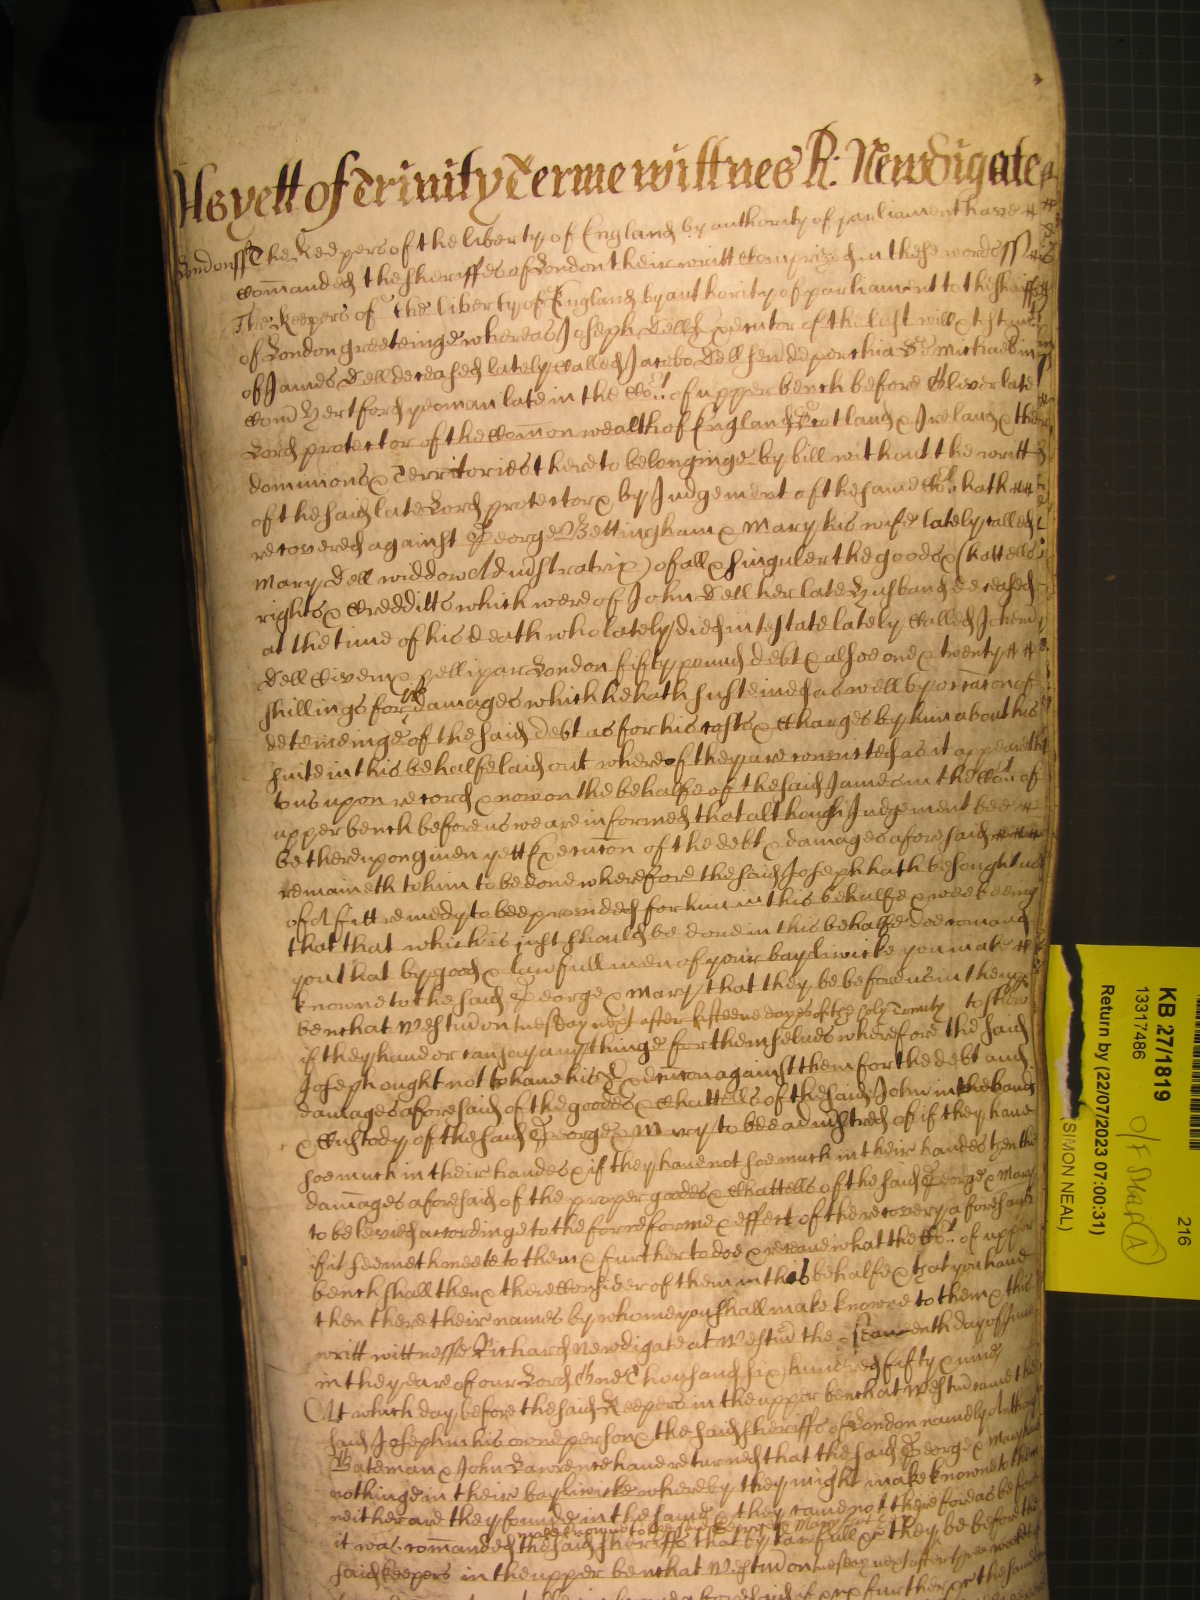 As yett of Trinity Terme wittnes R: Newdigate
Londonss The Keepers of the liberty of England by authority of parliament have
comanded the sheriffes of London their writt comprized in these words ss
The Keepers of the liberty of England by authority of parliament to the sheriffes
of London greeteinge whereas Joseph Dell Executor of the last will & testamt
of James Dell deceased lately called Jacobo Dell sen de parochia Sci Michaelis in
Com Hertford yeoman late in the Cort of upper bench before Oliver late
Lord protector of the Comon wealth of England Scotland & Ireland & the
dominions & Territories thereto belonginge by bill without the writt
of the said late Lord protector & by Judgement of the same Cort hath
recovered against George Bettingham & Mary his wife lately called
Mary Dell widdow Administratrix of all & singuler the goods & Chattells
rights & Credditts which were of John Dell her late husband deceased
at the time of his death who lately died intestate lately called Johem
Dell Civem & pellipar London fifty pound debt & alsoe one & twenty
shillings for his damages which he hath susteined as well by occacon of
deteineinge of the said debt as for his costs & Charges by him about his
suite in this behalfe laid out whereof they are convicted as it appeareth
to us upon record & now on the behalfe of the said James in the Cort of
upper bench before us we are informed that although Judgement bee
be thereupon given yett Execucon of the debt & damages aforesaid
remaineth to him to be done wherefore the said Joseph hath besought us
of A fitt remedy to bee provided for him in this behalfe & wee being
that that which is just should be done in this behalfe doe comand
you that by good & lawfull men of your bayliwicke you make
knowne to the said George & Mary that they be before us in the upper
bench at Westm on tuesday next after fifteene dayes of the holy Trinity to shew
if they have or can say any thinge for themselves wherefore the said
Joseph ought not to have his Execucon against them for the debt and
damages aforesaid of the goods & Chattells of the said John in the hands
& Custody of the said George & Mary to bee administred of if they have
soe much in their handes & if they have not soe much in their handes then the
damages aforesaid of the proper goodes & Chattells of the said George & Mary
to be levied accordinge to the force forme & effect of the recovery aforesaid
if it seemeth meete to them & further to doe & receave what the Cort of upper
bench shall then & there Consider of them in this behalfe & that you have
then there their names by whome you shall make knowne to them & this
writt wittnesse Richard Newdigate at Westm the seaventh day of June
in the yeare of our Lord One Thousand six hundred fifty & nine
At which day before the said Keepers in the upper bench at Westm came the
said Joseph in his owne person & the said sheriffs of London namely Anthony
Bateman & John Lawrence have returned that the said George & Mary had
nothinge in their bayliwicke whereby they might make knowne to them
neither are they founde in the same & they came not therefore as before
it was comanded the said sheriffs that by lawfull &c they be before the
make knowne to the said George & Mary that
said keepers in the upper bench at Westm on tuesday next after three weekes
KB 27/1819
13317486
Return by (22/07/2023 07:00:31)
SIMON NEAL)
216